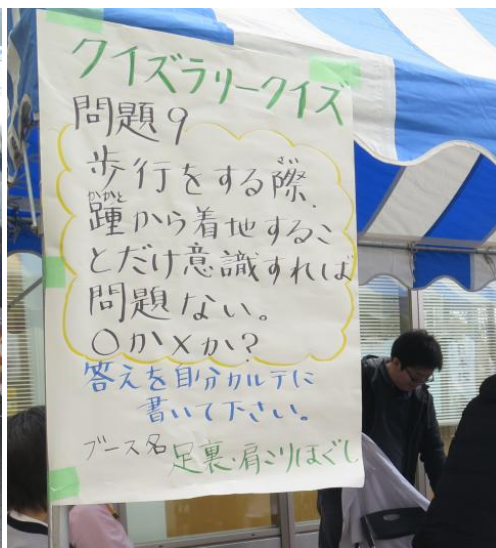 クイズラリークイズ
問題9
歩行をする際、
踵から着地するこ
とだけ意識すれば
問題ない。
○か×か?
答えを自分カルテに
書いて下さい。
ブース名 足裏・肩こりほぐし